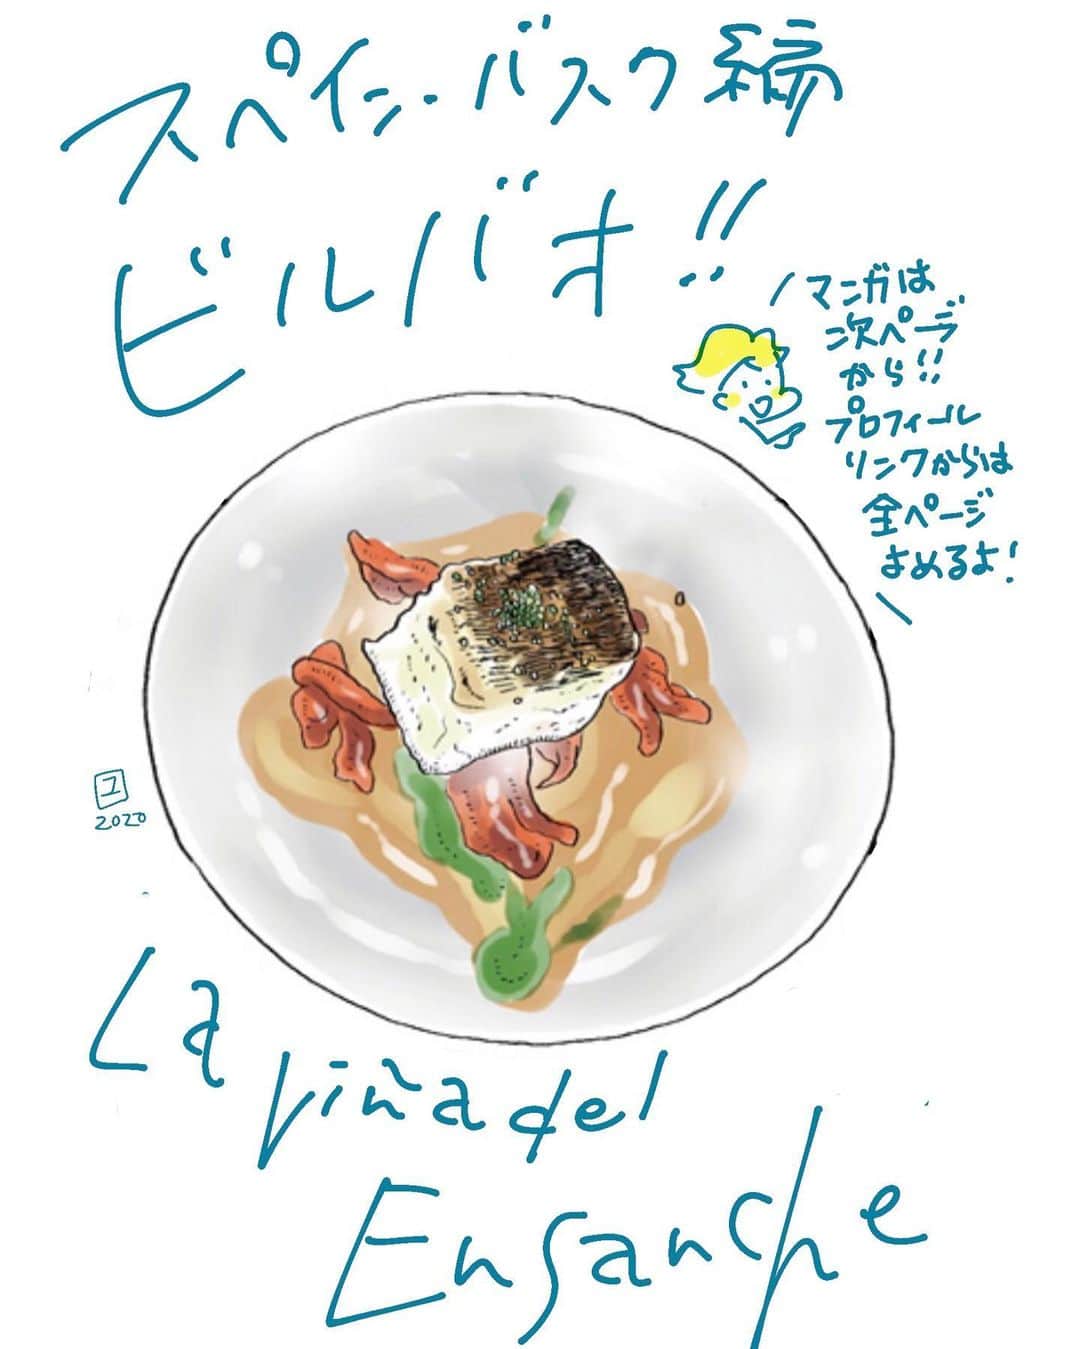 スペイン・バスク編
ビルバオ!!
マンガは
次ページ
から!!
プロフィール
リンクからは
全ページ
よめるよ!
ユ
2020
La
viña del
Ensanche